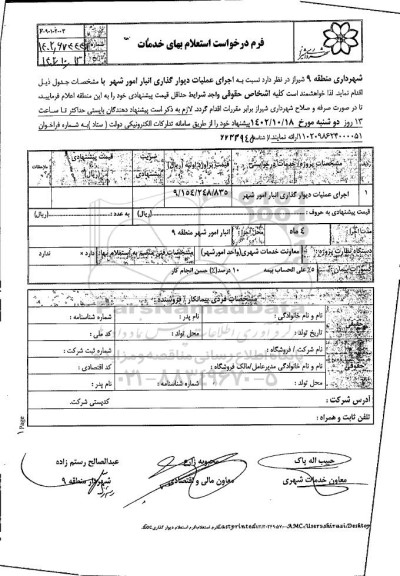 فرم درخواست استعلام بهای خدمات
۱۴۰۲/۱۰/۱۳
شهرداری منطقه ۹ شیراز در نظر دارد نسبت به اجرای عملیات دیوار گذاری انبار امور شهر با مشخصات جدول ذیل
اقدام نماید. لذا خواهشمند است کلیه اشخاص حقوقی واجد شرایط حداقل قیمت پیشنهادی خود را به این منطقه اعلام فرمایید
تا در صورت صرفه و صلاح شهرداری شیراز برابر مقررات اقدام گردد. لازم به ذکر است پیشنهاد دهندگان بایستی حداکثر تا ساعت
۱۳ روز دو شنبه مورخ ۱۴۰۲/۱۰/۱۸ پیشنهاد خود را از طریق سامانه تدارکات الکترونیکی دولت ( ستاد ) به شماره فراخوان
۱۱۰۲۰۹۸۶۲۳۰۰۰۰۵۱ ارائه نمایند.
ردیف
مشخصات پروژه/خدمات درخواستی
قیمت برآورد اولیه (ریال)
ضریب پیشنهادی
قیمت پیشنهادی (ریال)
ملاحظات
۱ اجرای عملیات دیوار گذاری انبار امور شهر ۹/۱۵۴/۲۴۸/۸۳۵
قیمت پیشنهادی به حروف : (ریال) به عدد : (ریال)
مدت اجرا ۴ ماه محل اجرا انبار امور شهر منطقه ۹
دستگاه نظارت پروژه: معاونت خدمات شهری(واحد امورشهر) مشخصات فنی منضم به استعلام بها: دارد × ندارد
کسور پیمان ۵٪ علی الحساب بیمه ۱۰ درصد(٪) حسن انجام کار
مشخصات فردی پیمانکار / فروشنده :
نام و نام خانوادگی : نام پدر : شماره شناسنامه :
تاریخ تولد : محل تولد : کد ملی :
حقوقی
نام شرکت / فروشگاه : شماره ثبت شرکت :
نام و نام خانوادگی مدیرعامل/مالک فروشگاه : کد اقتصادی :
محل تولد : شماره شناسنامه : نام پدر :
آدرس شرکت : کدپستی شرکت.
تلفن ثابت و همراه :
ParsNamadData
پایگاه اطلاع رسانی مناقصه و مزایده
۰۲۱-۸۸۳۴۹۶۷۰-۵
حبیب اله پاک
معاون خدمات شهری
محبوبه زارع
معاون مالی و اقتصادی
عبدالصالح رستم زاده
شهردار منطقه ۹
Page 1